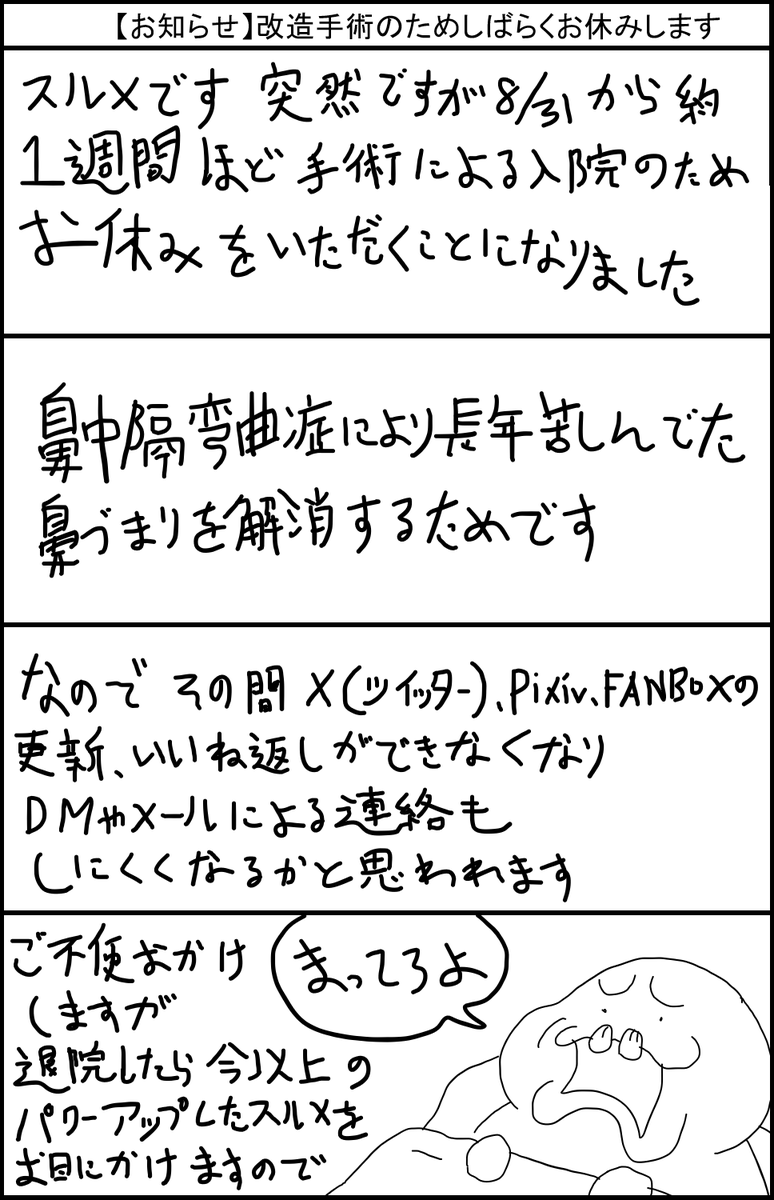 【お知らせ】改造手術のためしばらくお休みします
スルメです 突然ですが8/31から約
1週間ほど手術による入院のため
お休みをいただくことになりました
鼻中隔弯曲症により長年苦しんでた
鼻づまりを解消するためです
なのでその間X(ツイッター)、Pixiv、FANBOXの
更新、いいね返しができなくなり
DMやメールによる連絡も
しにくくなるかと思われます
ご不便おかけ
しますが
退院したら今以上の
パワーアップしたスルメを
お目にかけますので
まってろよ